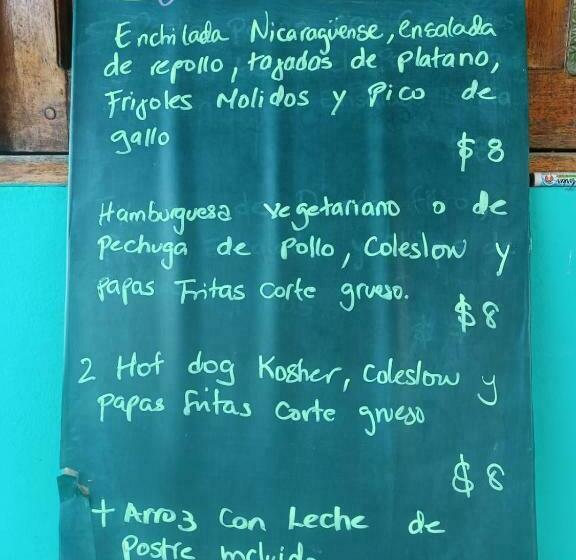 Enchilada Nicaragüense, ensalada
de repollo, tajadas de platano,
Frijoles Molidos y Pico de
gallo
$8
Hamburguesa vegetariano o de
Pechuga de Pollo, Coleslow y
Papas Fritas Corte grueso.
$8
2 Hot dog Kosher, Coleslow y
Papas fritas Corte grueso
$8
+ Arroz Con Leche de
Postre incluido